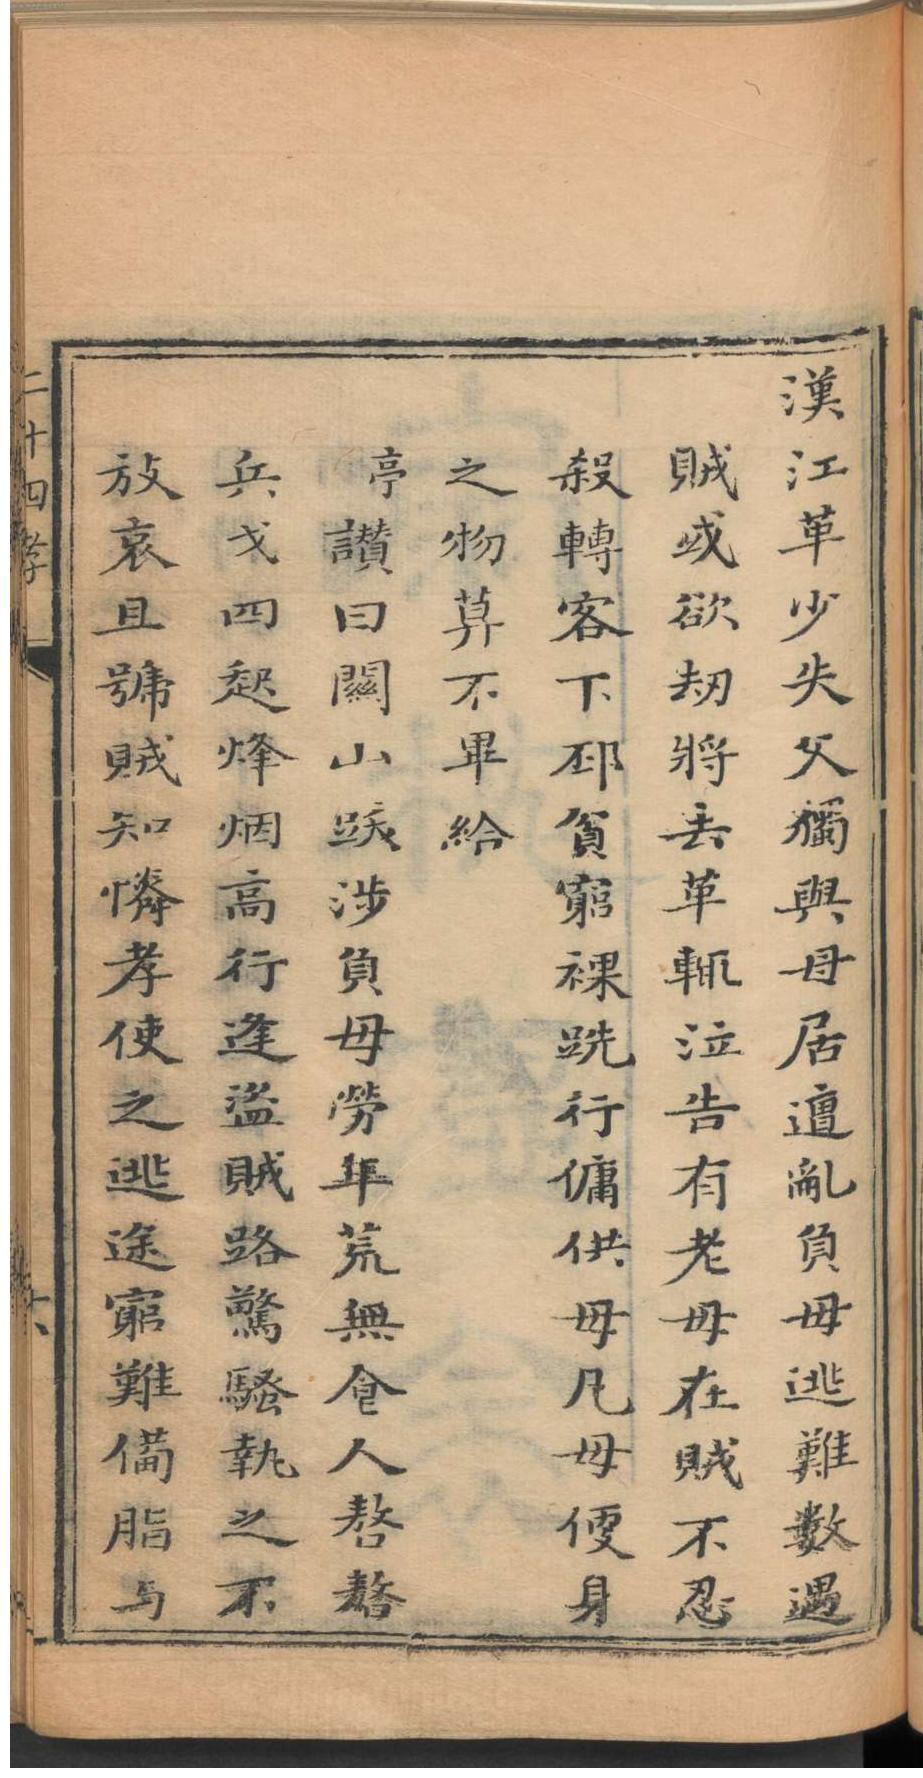 漢江革少失父獨與母居遭亂負母逃難數遇
賊或欲劫將去革輒泣告有老母在賊不忍
殺轉客下邳貧窮裸跣行傭供母凡母便身
之物莫不畢給
亭讃曰關山跋涉負母勞年荒無食人嗸嗸
兵戈四起烽烟高行逢盜賊路驚騷執之不
放哀且號賊知憐孝使之逃途窮難備脂与
二十四孝
六